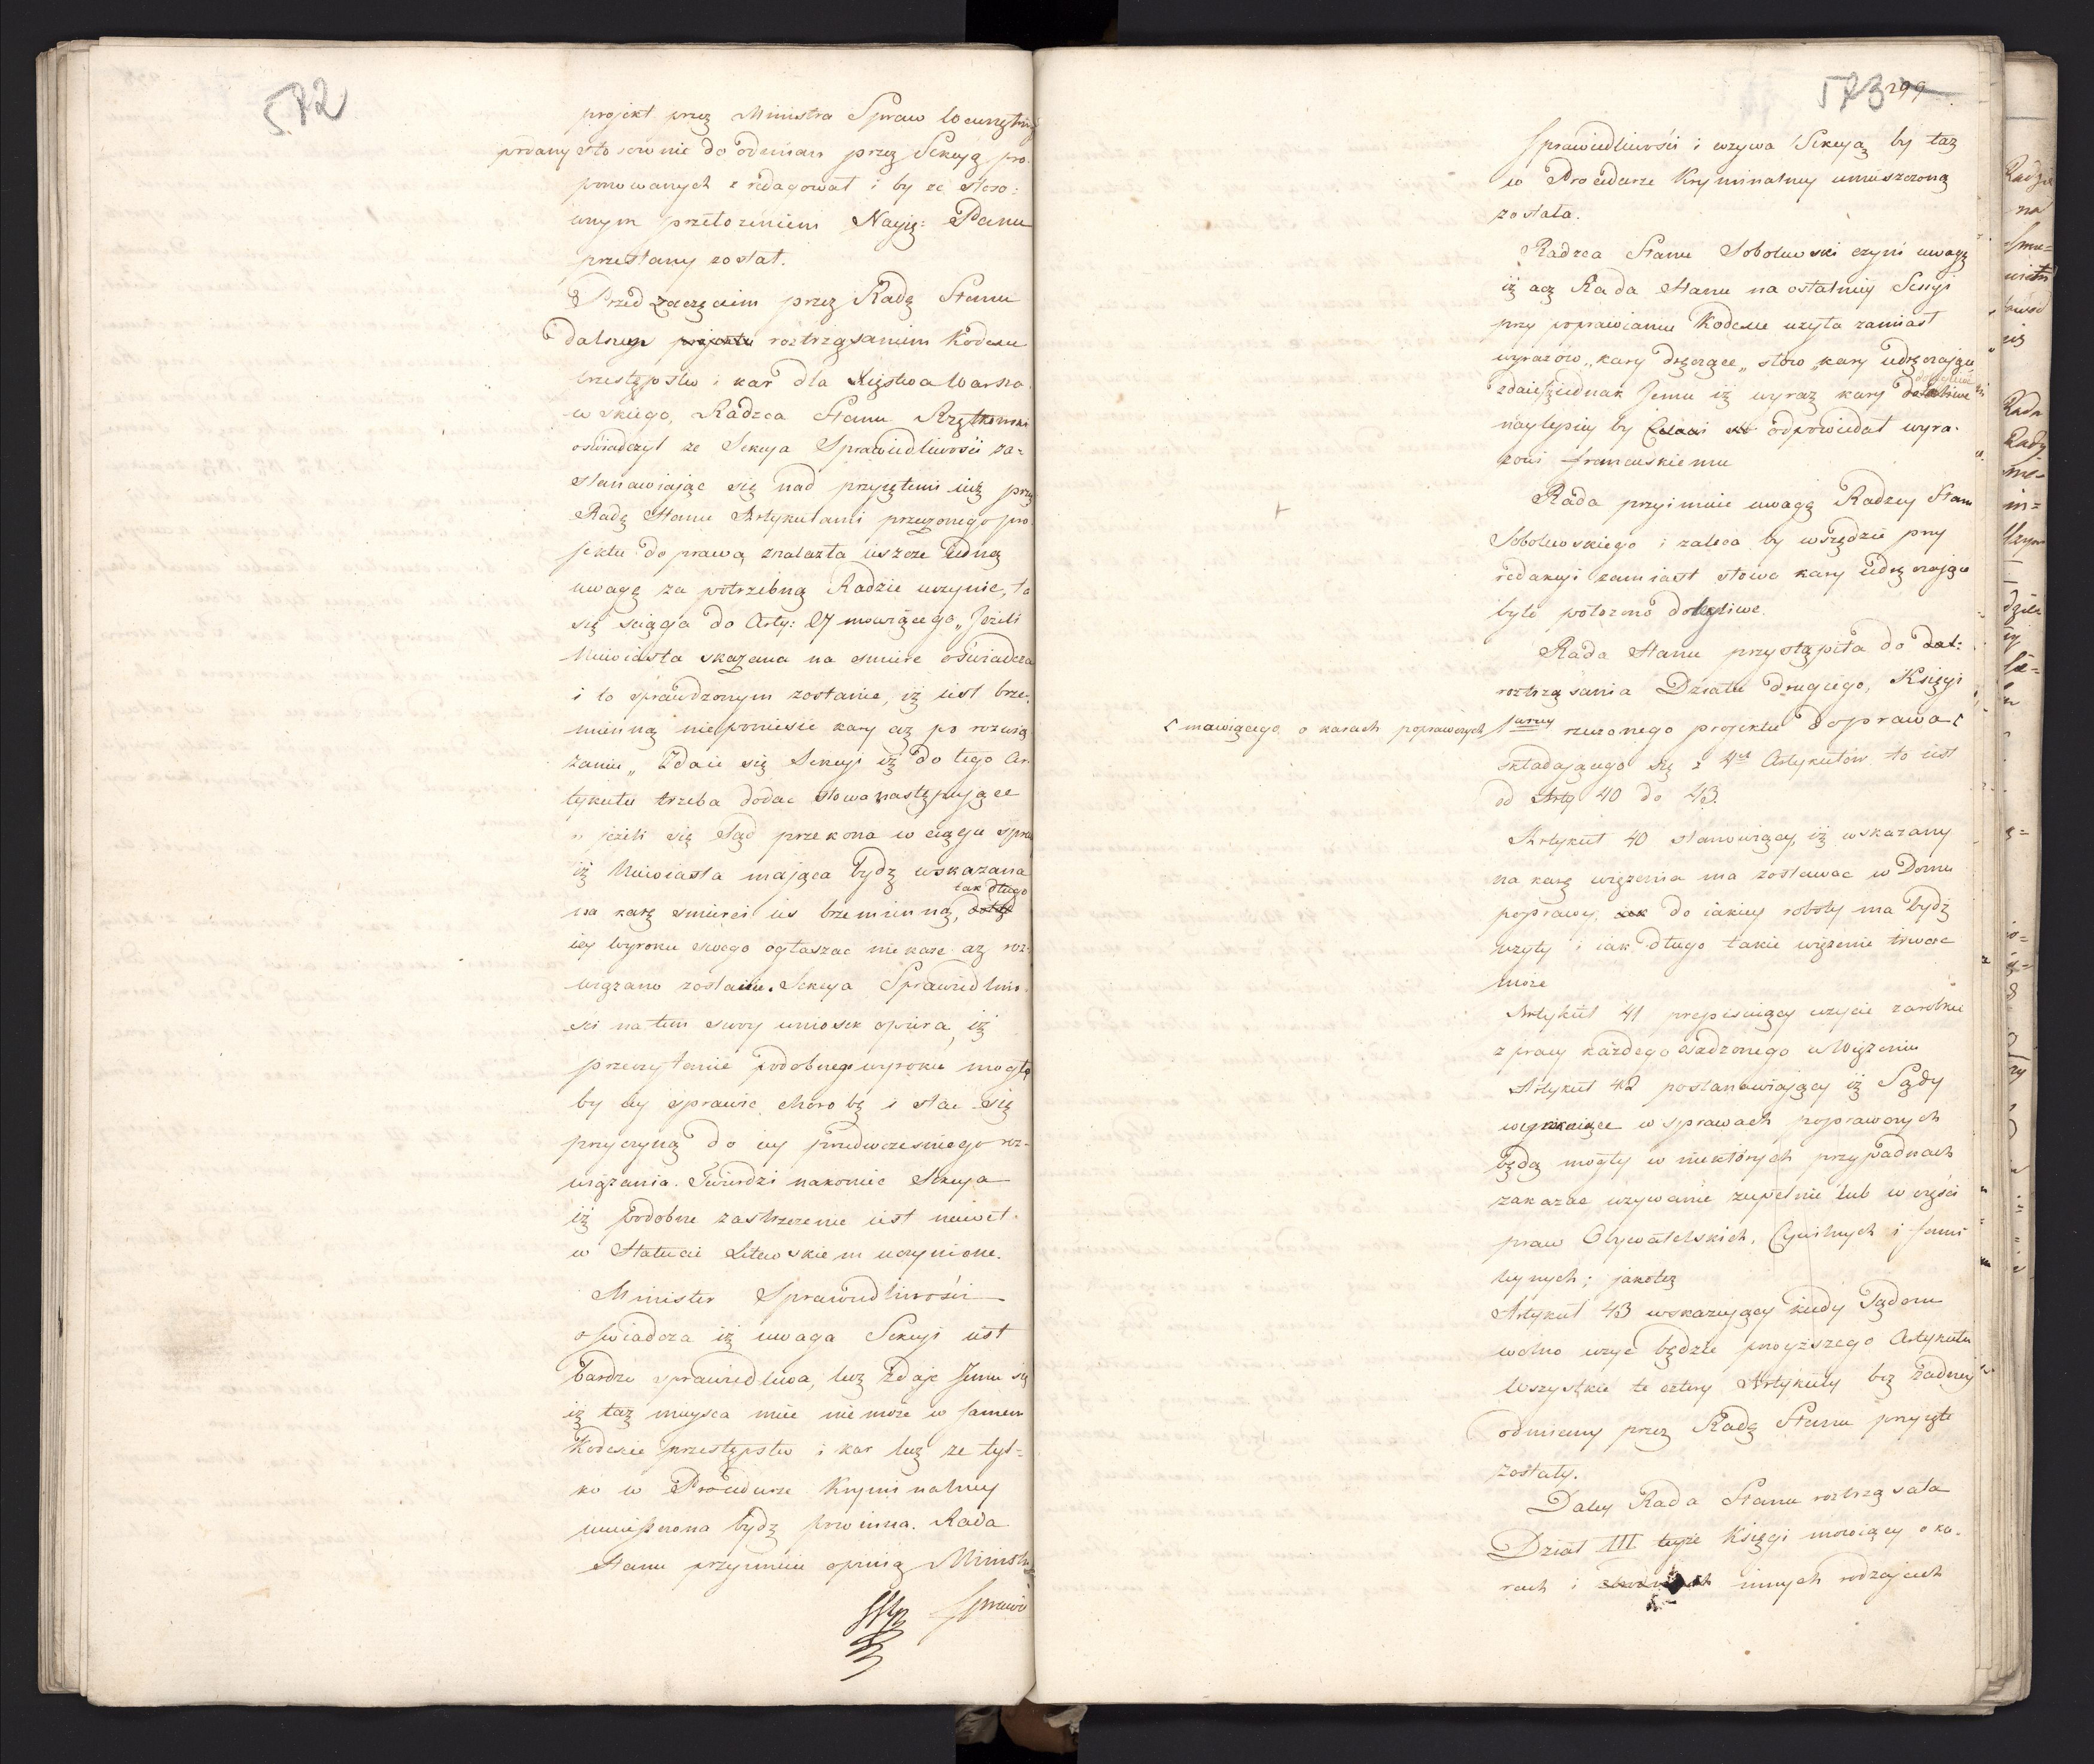 572
projekt przez Ministra Spraw Wewnętrzny
podany stosownie do odmian przez Sekcyą pro-
ponowanych zredagował i by ze stoso=
wnym przełożeniem Nayię: Panu
przesłany został.
Przed zaczęciem przez Radę Stanu
dalszego projektu roztrząsaniem Kodexu
przestępstw i kar dla Xięstwa Warsza-
wskiego, Radzca Stanu
oświadczył ze Sekcya Sprawiedliwości za-
stanawiając się nad przyiętemi iuż przez
Radę Stanu Artykułami przeczonego pro-
jektu do prawa, znalazła ieszcze iedną
uwagę za potrzebną Radzie uczynic, ta
się ściąga do Arty: 27 mowiącego „Jeżeli
Niewiasta skazana na smierc oświadcza
i to sprawdzonym zostanie, iż iest brze-
mienną nieponiesie kary aż po rozwią
zaniu„ Zdaie się Sekcyi iż do tego Ar-
tykułu trzeba dodac słowa następujące
„ jeżeli się Sąd przekona w ciągu spra
iż Niewiasta mająca bydz wskazana
tak długo
na karę smierci ies brzemienną, dotąd
iey wyroku swego ogłaszac nie każe aż roz-
wiązana zostanie. Sekcya Sprawiedliwo-
ści na tem swoy wniosek opiera, iż
przeczytanie podobnego wyroku mogło
by iey sprawic chorobę i stac się
przyczyną do iey przedwczesnego roz-
wiązania. Twierdzi nakoniec Sekcya
iż podobne zastrzezenie iest nawet
w Statucie Litewskiem uczynione.
Minister Sprawiedliwości
oswiadcza iż uwaga Sekcyi iest
bardzo sprawiedliwa, lecz zdaje Jemu się
iż taż mieysca miec nie może w samem
Kodexie przestępstw i kar lecz ze tyl=
ko w Procedurze Kryminalney
umieszczona bydz powinna. Rada
Stanu przyimuie opinią Ministra
Sprawie
573 299
Sprawiedliwości i wzywa Sekcyą by taż
w Procedurze Kryminalney umieszczoną
została.
Radzca Stanu Sobolewski czyni uwagę
iż acz Rada Stanu na ostatniey Sessyi
przy poprawianiu Kodexu użyła zamiast
wyrazów „kary dręczące„ słow „kary udręczające
zdaie się iednak Jemu iż wyraz kary dolegliwe
naylepiey by odpowiedał wyra-
zowi francuskiemu
Rada przyimuie uwagę Radzcy Stanu
Sobolewskiego i zaleca by wszędzie przy
redakcyi zamiast słowa kary udręczające
było położono dolegliwe.
Rada Stanu przystąpiła do dal:
roztrząsania Działu drugiego, Księgi
[ mawiącego o karach poprawczych
1wszey rzeczonego projektu do prawa [
składającego się z 4rech Artykułów to iest
od Arty 40 do 43.
Artykuł 40 stanowiący, iż wskazany
na karę więzenia ma zostawac w Domu
poprawy, iak do iakiey roboty ma bydz
użyty i iak długo takie więzenie trwac
może
Artykuł 41 przepisuiący użycie zarobku
z pracy każdego osadzonego w Więzeniu
Artykuł 42 postanawiający iż Sądy
wyrokuiące w sprawach poprawczych
będą mogły w niektórych przypadkach
zakazac używanie zupełnie lub w części
praw Obywatelskich, Cywilnych i fami
liynych; jakoteż
Artykuł 43 wskazujący kiedy Sądom
wolno użyc będzie powyższego Artykułu
Wszystkie te cztery Artykuły bez żadney
odmiany przez Radę Stanu przyięte
zostały.
Daley Rada Stanu roztrząsała
Dział III teyże Księgi mowiący o ka-
rach i innych rodzajach